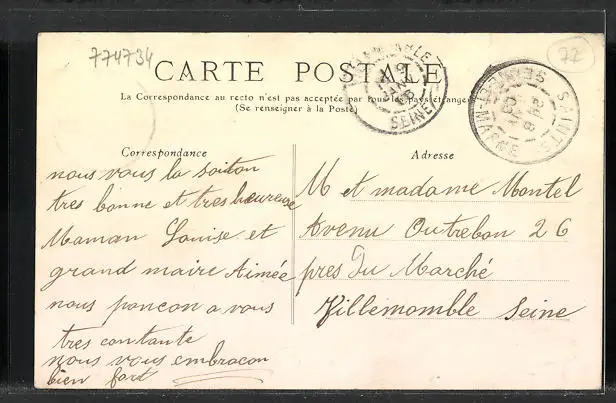 774734
72
CARTE POSTALE
La Correspondance au recto n'est pas acceptée par tous les pays étrangers
(Se renseigner à la Poste)
SEINE
SEINE-ET-MARNE
Correspondance
nous vous la soiton
tres bonne et tres heureuse
Maman Louise et
grand maire Aimée
nous poncon a vous
tres contante
nous vous embracon
bien fort
Adresse
M et madame Montel
Avenu Outrebon 26
pres du Marché
Villemomble Seine